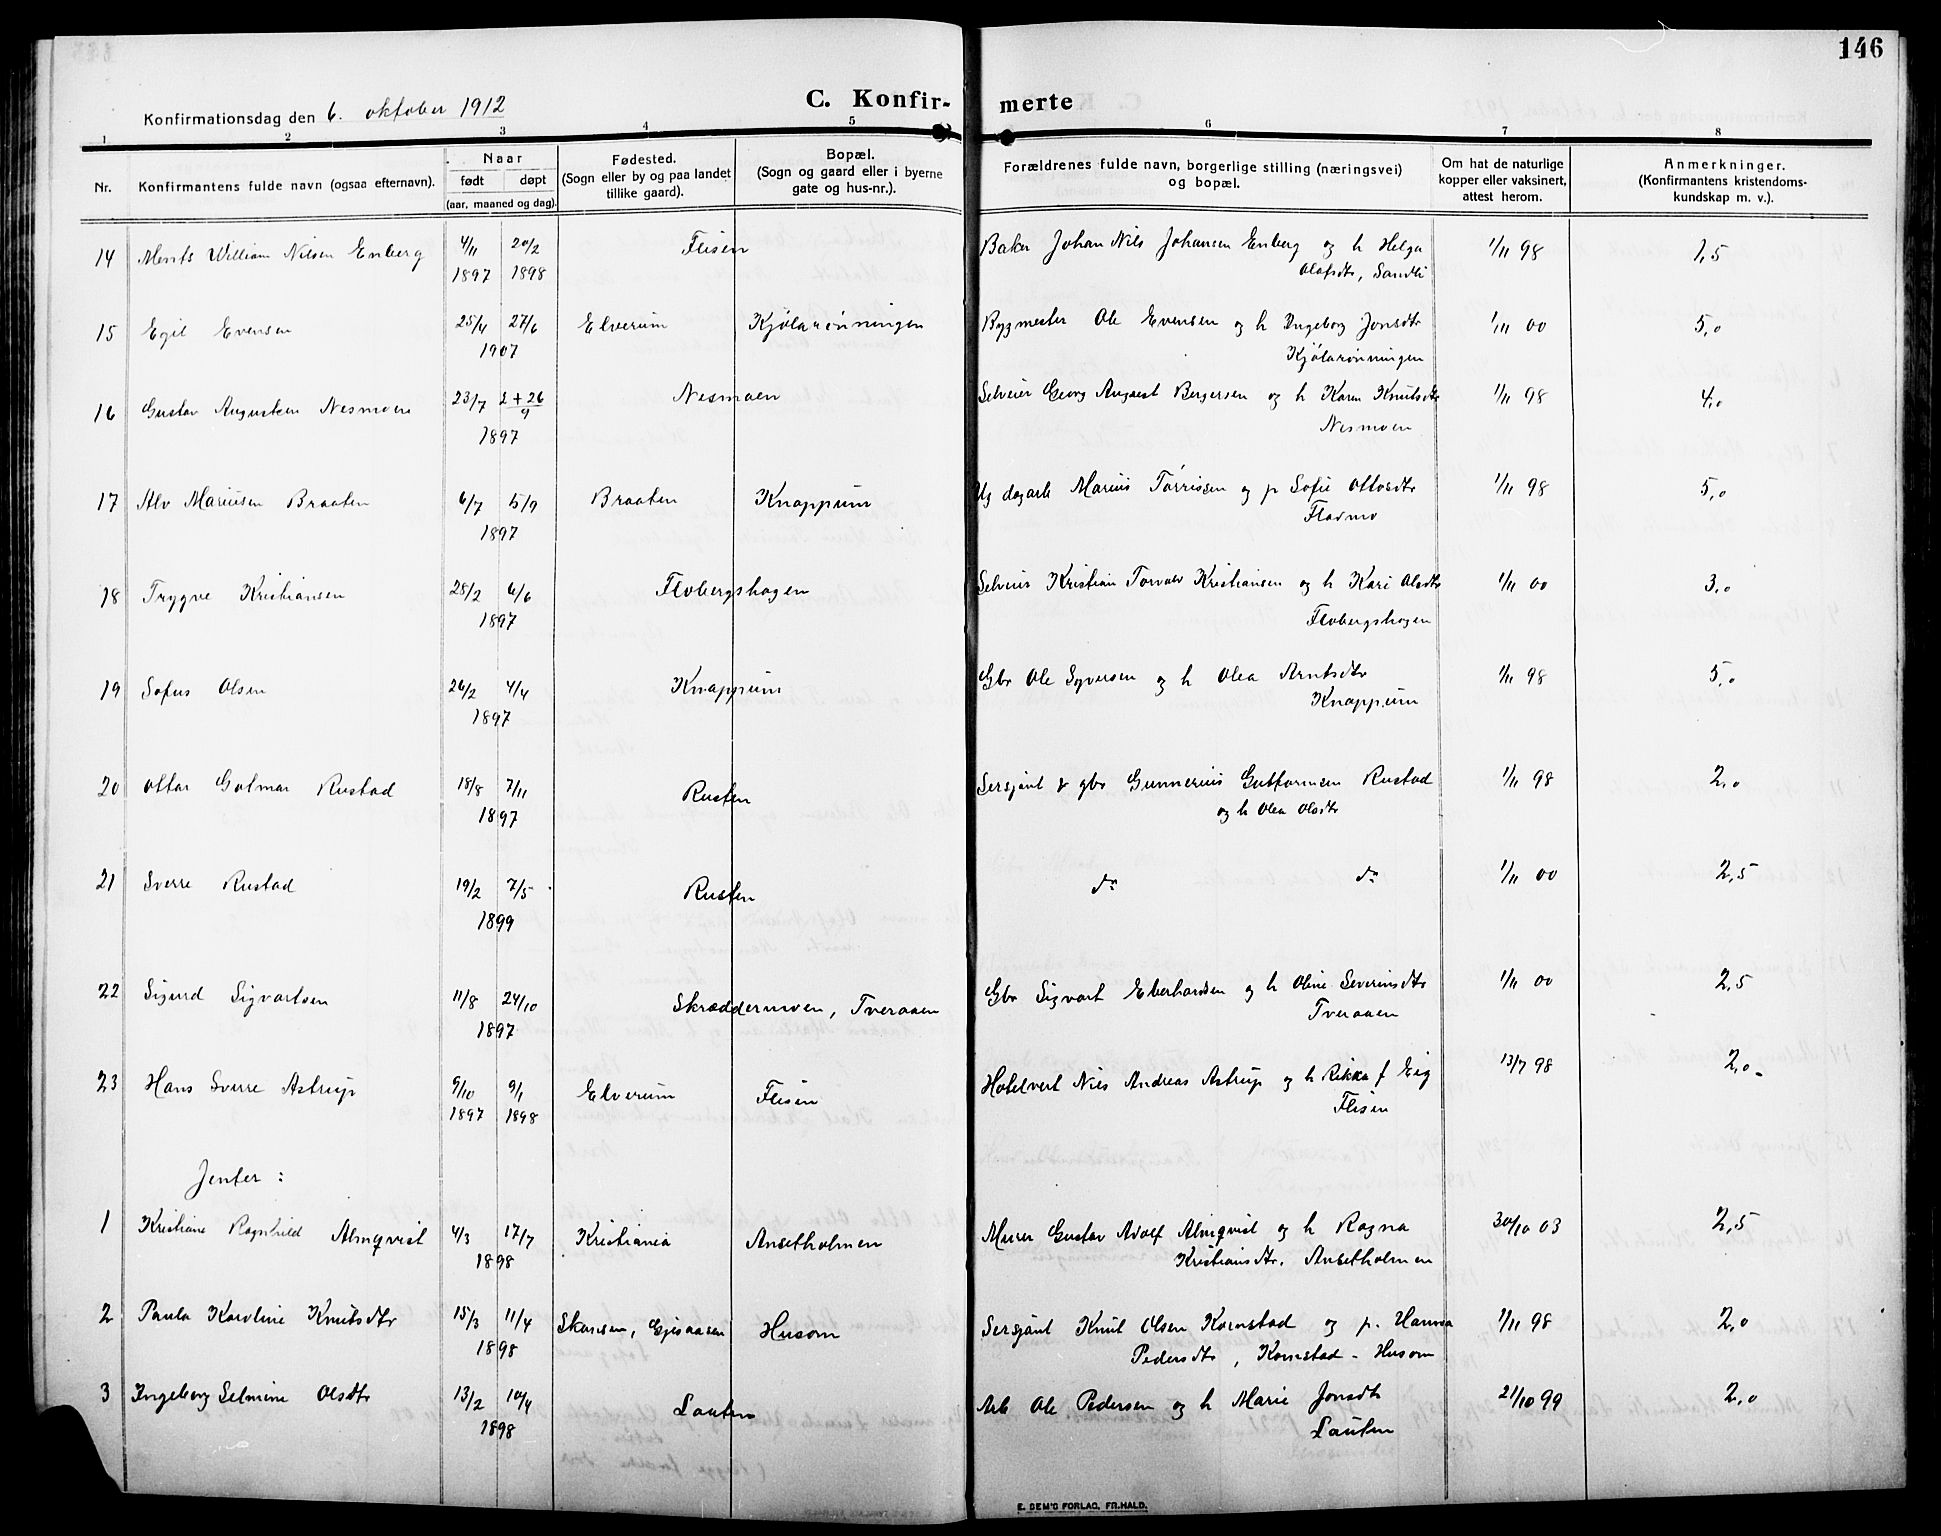 146
Konfirmationsdag den 6. oktober 1912
C. Konfir- merte
1 2 3 4 5 6 7 8
Nr. Konfirmantens fulde navn (ogsaa efternavn).
Naar
født døpt
(aar, maaned og dag).
Fødested.
(Sogn eller by og paa landet
tillike gaard).
Bopæl.
(Sogn og gaard eller i byerne
gate og hus-nr.).
Forældrenes fulde navn, borgerlige stilling (næringsvei)
og bopæl.
Om hat de naturlige
kopper eller vaksinert,
attest herom.
Anmerkninger.
(Konfirmantens kristendoms-
kundskap m. v.).
14 Ments William Nilsen Enberg 4/11 20/2 Flisen Baker Johan Nils Johansen Enberg og h Helga 1/11 98 1,5
1897 1898 Olofsdtr, Sandli
15 Egil Evensen 25/4 27/6 Elverum Kjölarønningen Bygmester Ole Evensen og h Ingeborg Jonsdtr 1/11 00 5,0
1907 Kjölarønningen
16 Gustav Augustsen Nesmoen 23/7 2+26/9 Nesmoen Selveier Georg August Bergersen og h Karen Knutsdtr 1/11 98 4,0
1897 Nesmoen
17 Alv Mariusen Braaten 6/7 5/9 Braaten Knappum Ug dagarb Marius Tørrissen og p Sofie Ottosdtr 1/11 98 5,0
1897 Flasmo
18 Trygve Kristiansen 28/2 6/6 Flobergshagen Selveier Kristian Torvald Kristiansen og h Kari Olsdtr 1/11 00 3,0
1897 Flobergshagen
19 Sofus Olsen 26/2 4/4 Knappum Gbr Ole Syversen og h Olea Arntsdtr 1/11 98 5,0
1897 Knappum
20 Ottar Golmar Rustad 18/8 7/11 Rusten Sersjant & gbr Gunnerius Guttormsen Rustad 1/11 98 2,0
1897 og h Olea Olsdtr
21 Sverre Rustad 19/2 7/5 Rusten do do 1/11 00 2,5
1899
22 Sigurd Sigvartsen 11/8 24/10 Skræddermoen, Tveraaen Gbr Sigvart Eberhardsen og h Oline Severinsdtr 1/11 00 2,5
1897 Tveraaen
23 Hans Sverre Astrup 9/10 9/1 Elverum Flisen Hotelvert Nils Andreas Astrup og h Rikka f Eig 13/7 98 2,0
1897 1898 Flisen
Jenter :
1 Kristiane Ragnhild Almqvist 4/3 17/7 Kristiania Ansetholmen Murer Gustav Adolf Almqvist og h Ragna 30/10 03 2,5
1898 Kristiansdtr. Ansetholmen
2 Paula Karoline Knutsdtr 15/3 11/4 Skansen, Gjesaasen Husom Sersjant Knut Olsen Kornstad og p. Hanna 1/11 98 2,0
1898 Pedersdtr, Kornstad - Husom
3 Ingeborg Selmine Olsdtr 13/2 10/4 Lauten Arb Ole Pedersen og h Marie Jonsdtr 21/10 99 2,0
1898 Lauten
E. SEM'S FORLAG, FR.HALD.